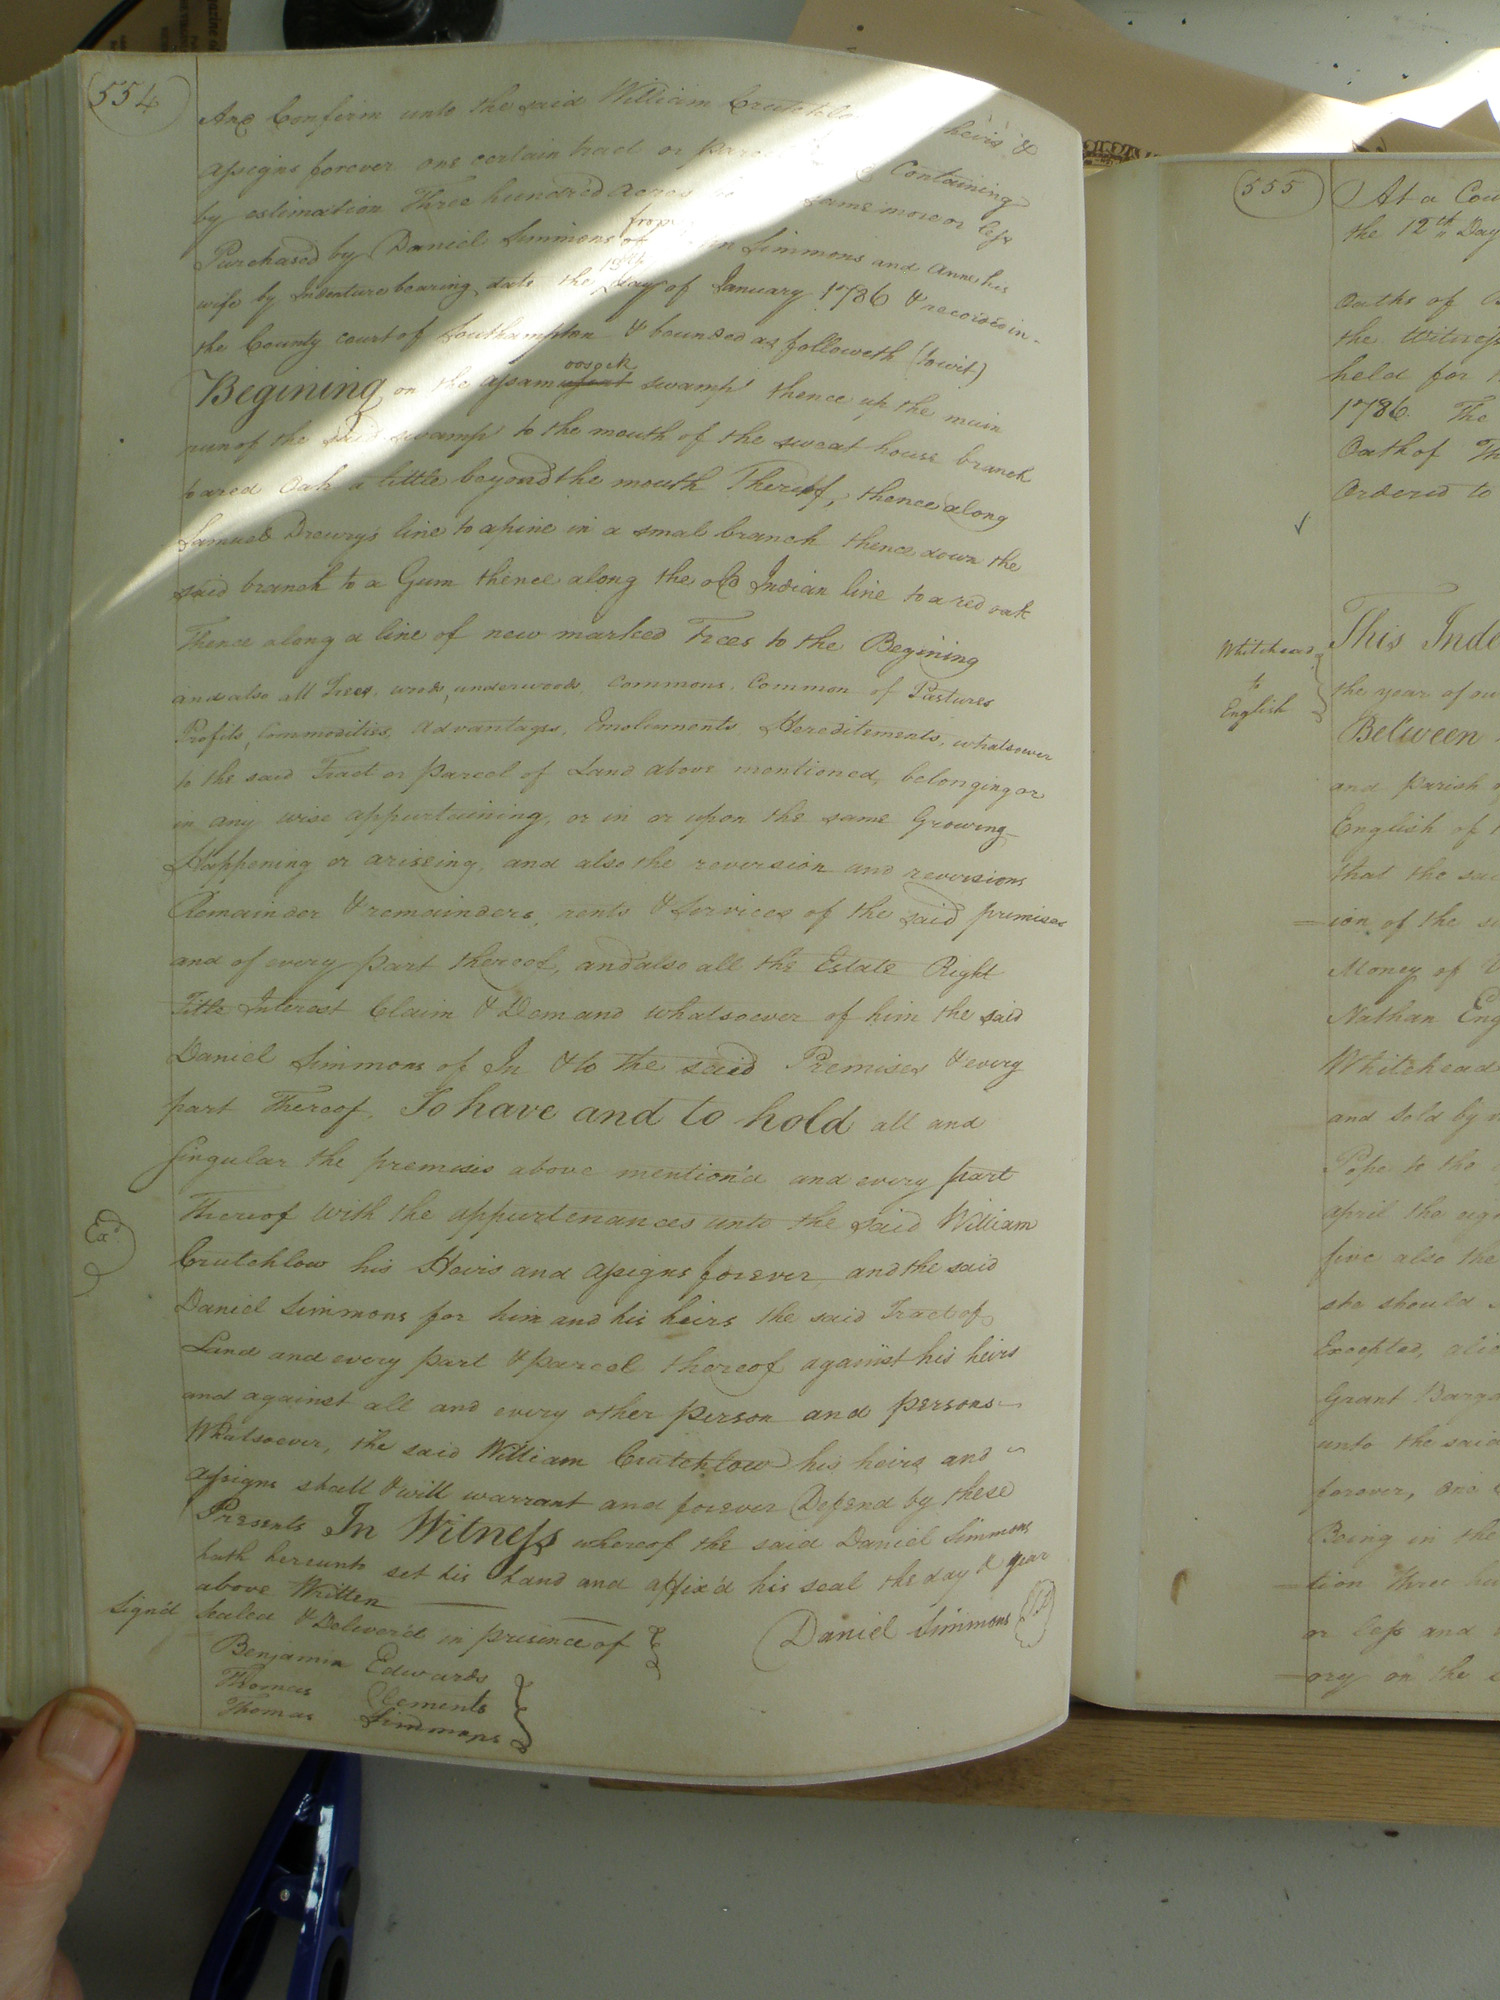 554
And Confirm unto the said William Crutchlo heirs &
assigns forever one certain tract or parce Containing
by estimation Three hundred acres same more or less
from
Purchased by Daniel Simmons of Simmons and Anne his
19th
wife by Indenture bearing date the day of January 1786 & recorded in
the County court of Southampton & bounded as followeth (towit)
oosock
Begining on the assam swamp thence up the main
run of the said swamp to the mouth of the sweat house branch
to a red Oak a little beyond the mouth Thereof, thence along
Samuel Drewry's line to a pine in a smal branch thence down the
said branch to a Gum thence along the old Indian line to a red oak
Thence along a line of new marked Trees to the Begining
and also all Trees, woods, underwoods, Commons, Common of Pastures
Profits, Commodities, Advantages, Emoluments Hereditements, whatsoever
to the said Tract or parcel of Land above mentioned, belonging or
in any wise appurtaining, or in or upon the same Growing
Happening or ariseing, and also the reversion and reversions
Remainder & remainders, rents & Services of the said premises
and of every part thereof, and also all the Estate Right
Title Interest Claim & Demand whatsoever of him the said
Daniel Simmons of In & to the said Premises & every
part Thereof, To have and to hold all and
Singular the premises above mention'd and every part
Thereof with the appurtenances unto the said William
Crutchlow his Heirs and assigns forever, and the said
Ex.d
Daniel Simmons for him and his heirs the said Tract of
Land and every part & parcel thereof against his heirs
and against all and every other person and persons
Whatsoever, the said William Crutchlow his heirs and
assigns shall & will warrant and forever Defend by these
Presents In Witness whereof the said Daniel Simmons
hath hereunto set his hand and affix'd his seal the day & year
above Written
Sign'd Sealed & Deliver'd in presence of
Daniel Simmons
Benjamin Edwards
Thomas Clements
Thomas Simmons
555
At a Cou
the 12th Day
Oaths of
the Witness
held for
1786 The
Oath of Th
Ordered to
Whitehead
to
English
This Inde
the year of our
Between
and parish
English of
that the sai
ion of the s
Money of
Nathan Eng
Whitehead
and Sold by
Pope to the
april the eig
five also the
she should
Excepted, al
Grant Barga
unto the said
forever, one
Being in the
tion three hu
or less and
ory on the